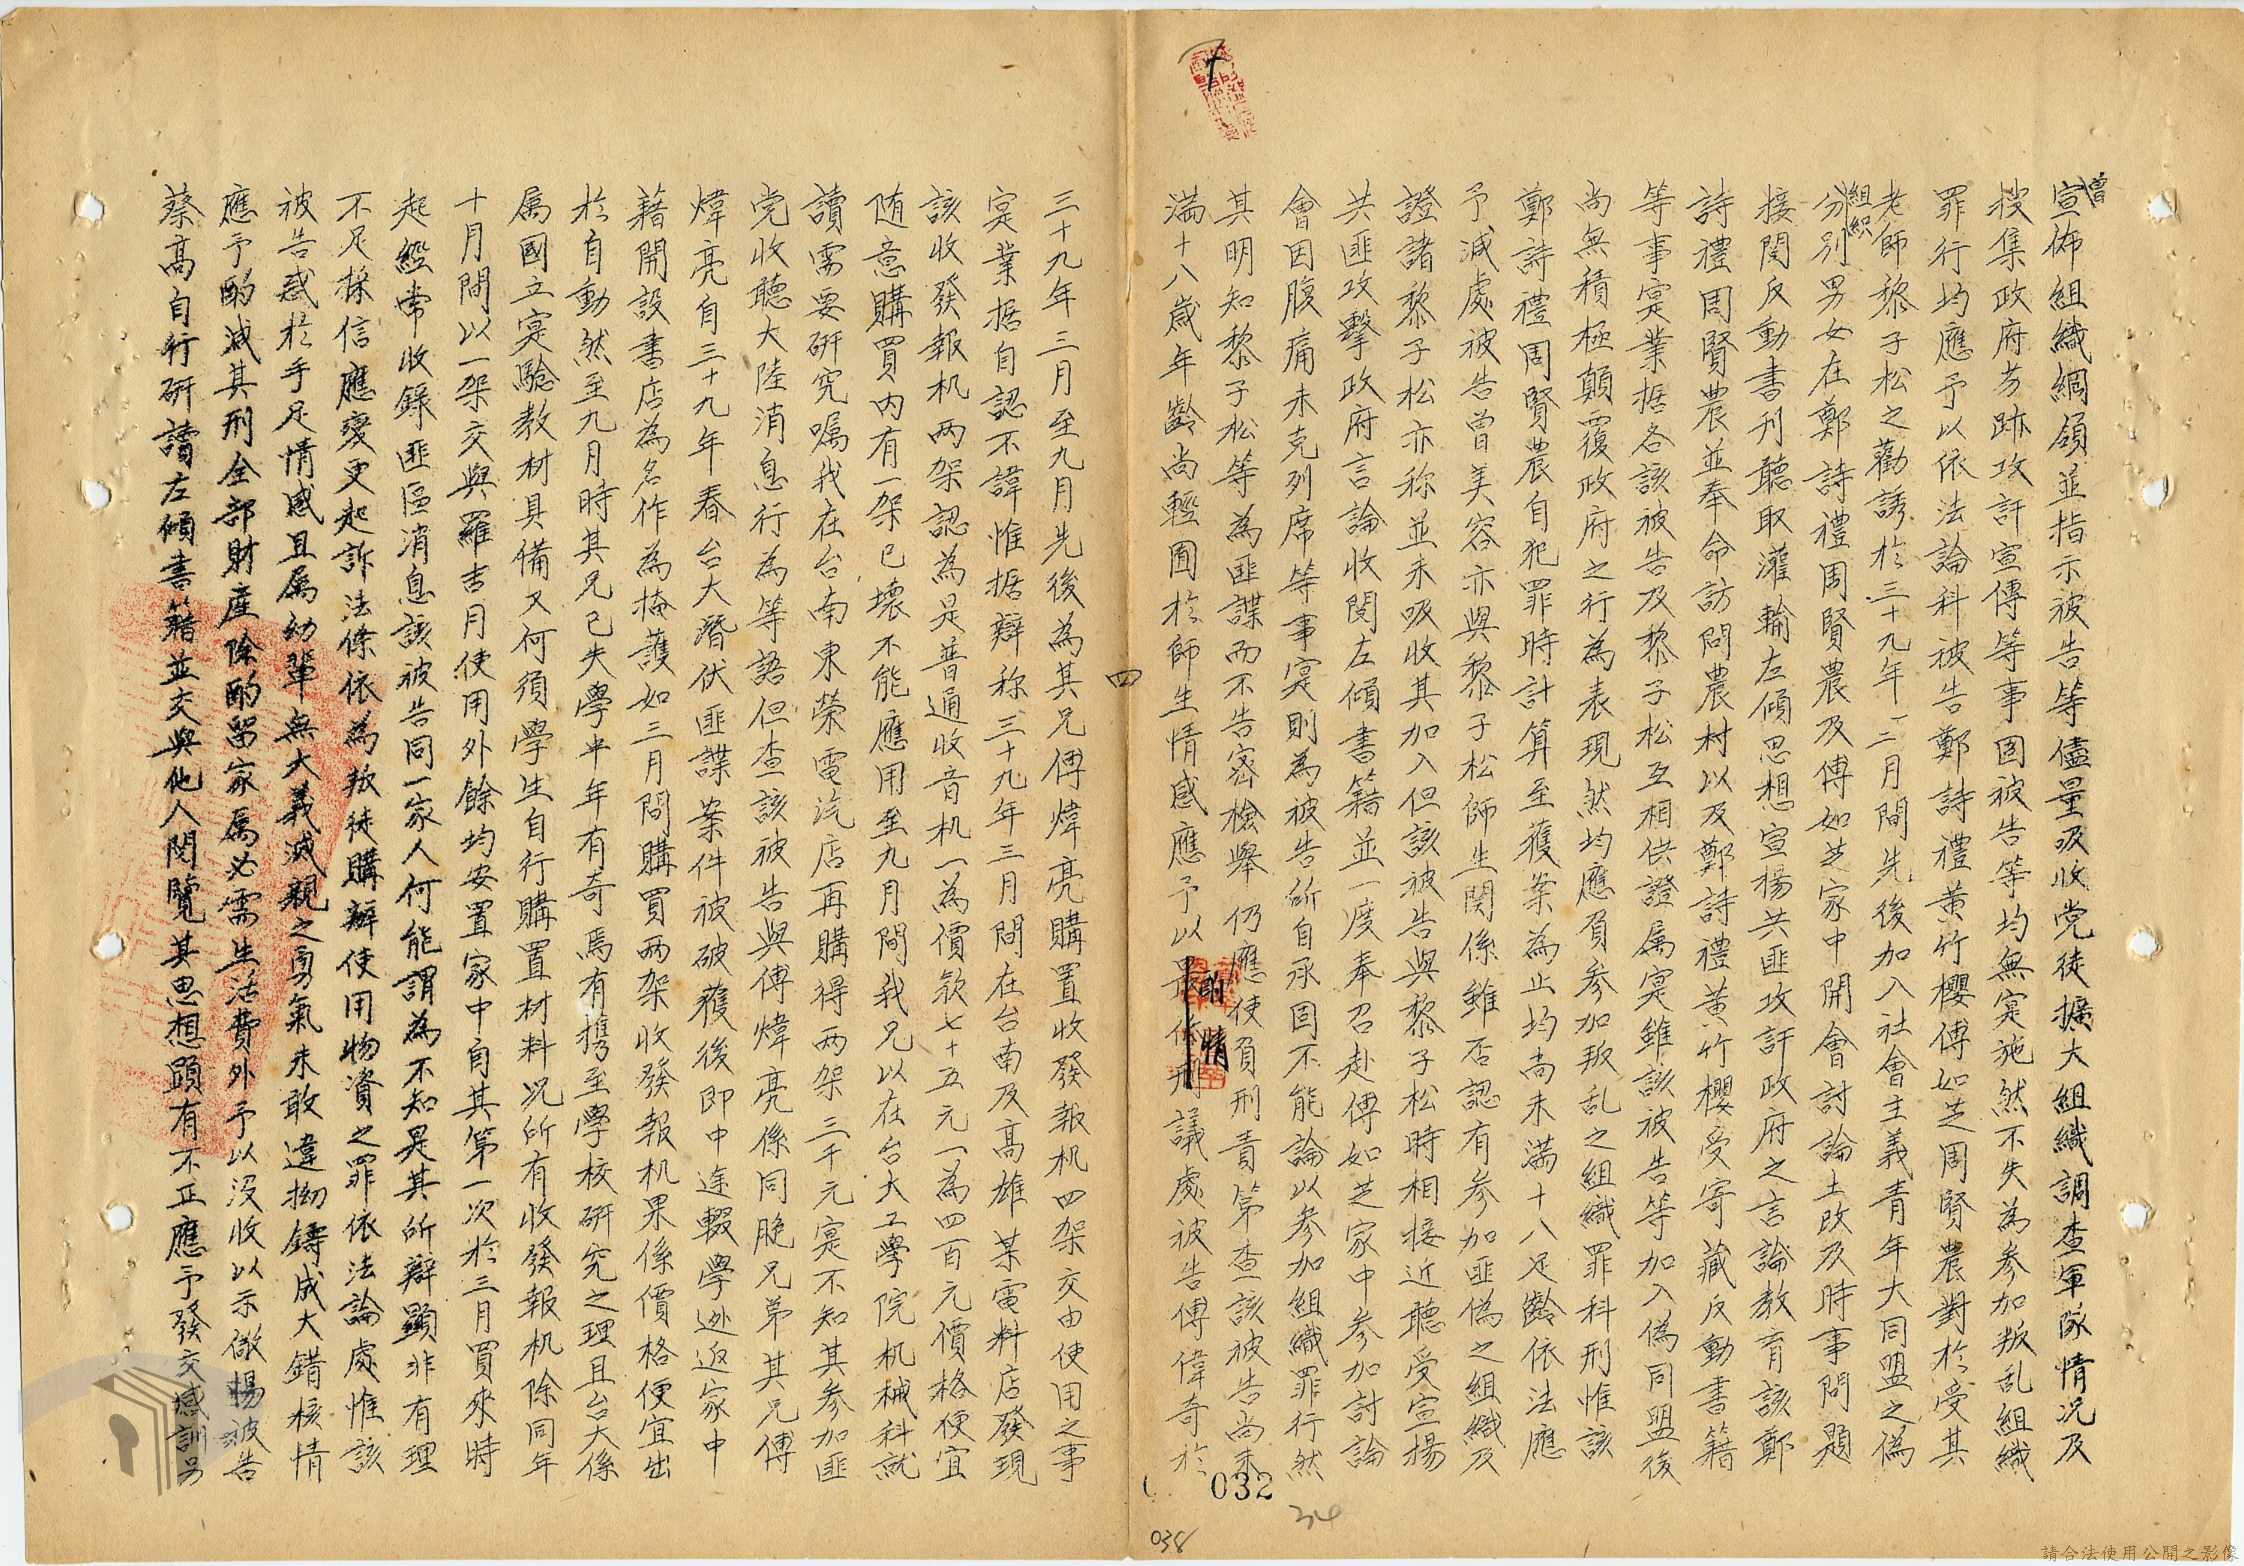 曾
宣佈組織綱領並指示被告等儘量吸收党徒擴大組織調查軍隊情況及
搜集政府劣跡攻訐宣傳等事固被告等均無寔施然不失為参加叛乱組織
罪行均應予以依法論科被告鄭詩禮黃竹櫻傅如芝周賢農對於受其
老師黎子松之勸誘於三十九年一二月間先後加入社會主義青年大同盟之偽
組織
分別男女在鄭詩禮周賢農及傅如芝家中開會討論土改及時事問題
接閱反動書刊聽取灌輸左傾思想宣揚共匪攻訐政府之言論教育該鄭
詩禮周賢農並奉命訪問農村以及鄭詩禮黃竹櫻受寄藏反動書籍
等事寔業据各該被告及黎子松互相供證属寔雖該被告等加入偽同盟後
尚無積極顛覆政府之行為表現然均應負参加叛乱之組織罪科刑惟該
鄭詩禮周賢農自犯罪時計算至獲案為止均尚未滿十八足齡依法應
予減處被告曾美容亦與黎子松師生関係雖否認有参加匪偽之組織及
證諸黎子松亦称並未吸收其加入但該被告與黎子松時相接近聽受宣揚
共匪攻擊政府言論收閱左傾書籍並一度奉召赴傅如芝家中参加討論
會因腹痛未克列席等事寔則為被告所自承固不能論以参加組織罪行然
其明知黎子松等為匪諜而不告密檢舉仍應使負刑責第查該被告尚未
滿十八歲年齡尚輕囿於師生情感應予以酌情議處被告傅偉奇於
四
三十九年三月至九月先後為其兄傅煒亮購置收發報机四架交由使用之事
寔業据自認不諱惟据辯称三十九年三月間在台南及高雄某電料店發現
該收發報机两架認為是普通收音机一為價款七十五元一為四百元價格便宜
随意購買内有一架已壞不能應用至九月間我兄以在台大工學院机械科就
讀需要研究嘱我在台南東榮電汽店再購得两架三千元寔不知其参加匪
党收聽大陸消息行為等語但查該被告與傅煒亮係同胞兄弟其兄傅
煒亮自三十九年春台大潛伏匪諜案件被破獲後即中途輟學逊返家中
藉開設書店為名作為掩護如三月間購買两架收發報机果係價格便宜出
於自動然至九月時其兄已失學半年有奇焉有携至學校研究之理且台大係
属國立寔驗教材具備又何須學生自行購置材料況所有收發報机除同年
十月間以一架交與羅吉月使用外餘均安置家中自其第一次於三月買來時
起經常收錄匪區消息該被告同一家人何能謂為不知是其所辯顯非有理
不足採信應變更起訴法條依為叛徒購辦使用物資之罪依法論處惟該
被告惑於手足情感且属幼輩無大義滅親之勇氣未敢違拗鑄成大錯核情
應予酌減其刑全部財產除酌留家属必需生活費外予以沒收以示儆惕被告
蔡高自行研讀左傾書籍並交與他人閱覽其思想顕有不正應予發交感訓另
032
34
038
請合法使用公開之影像